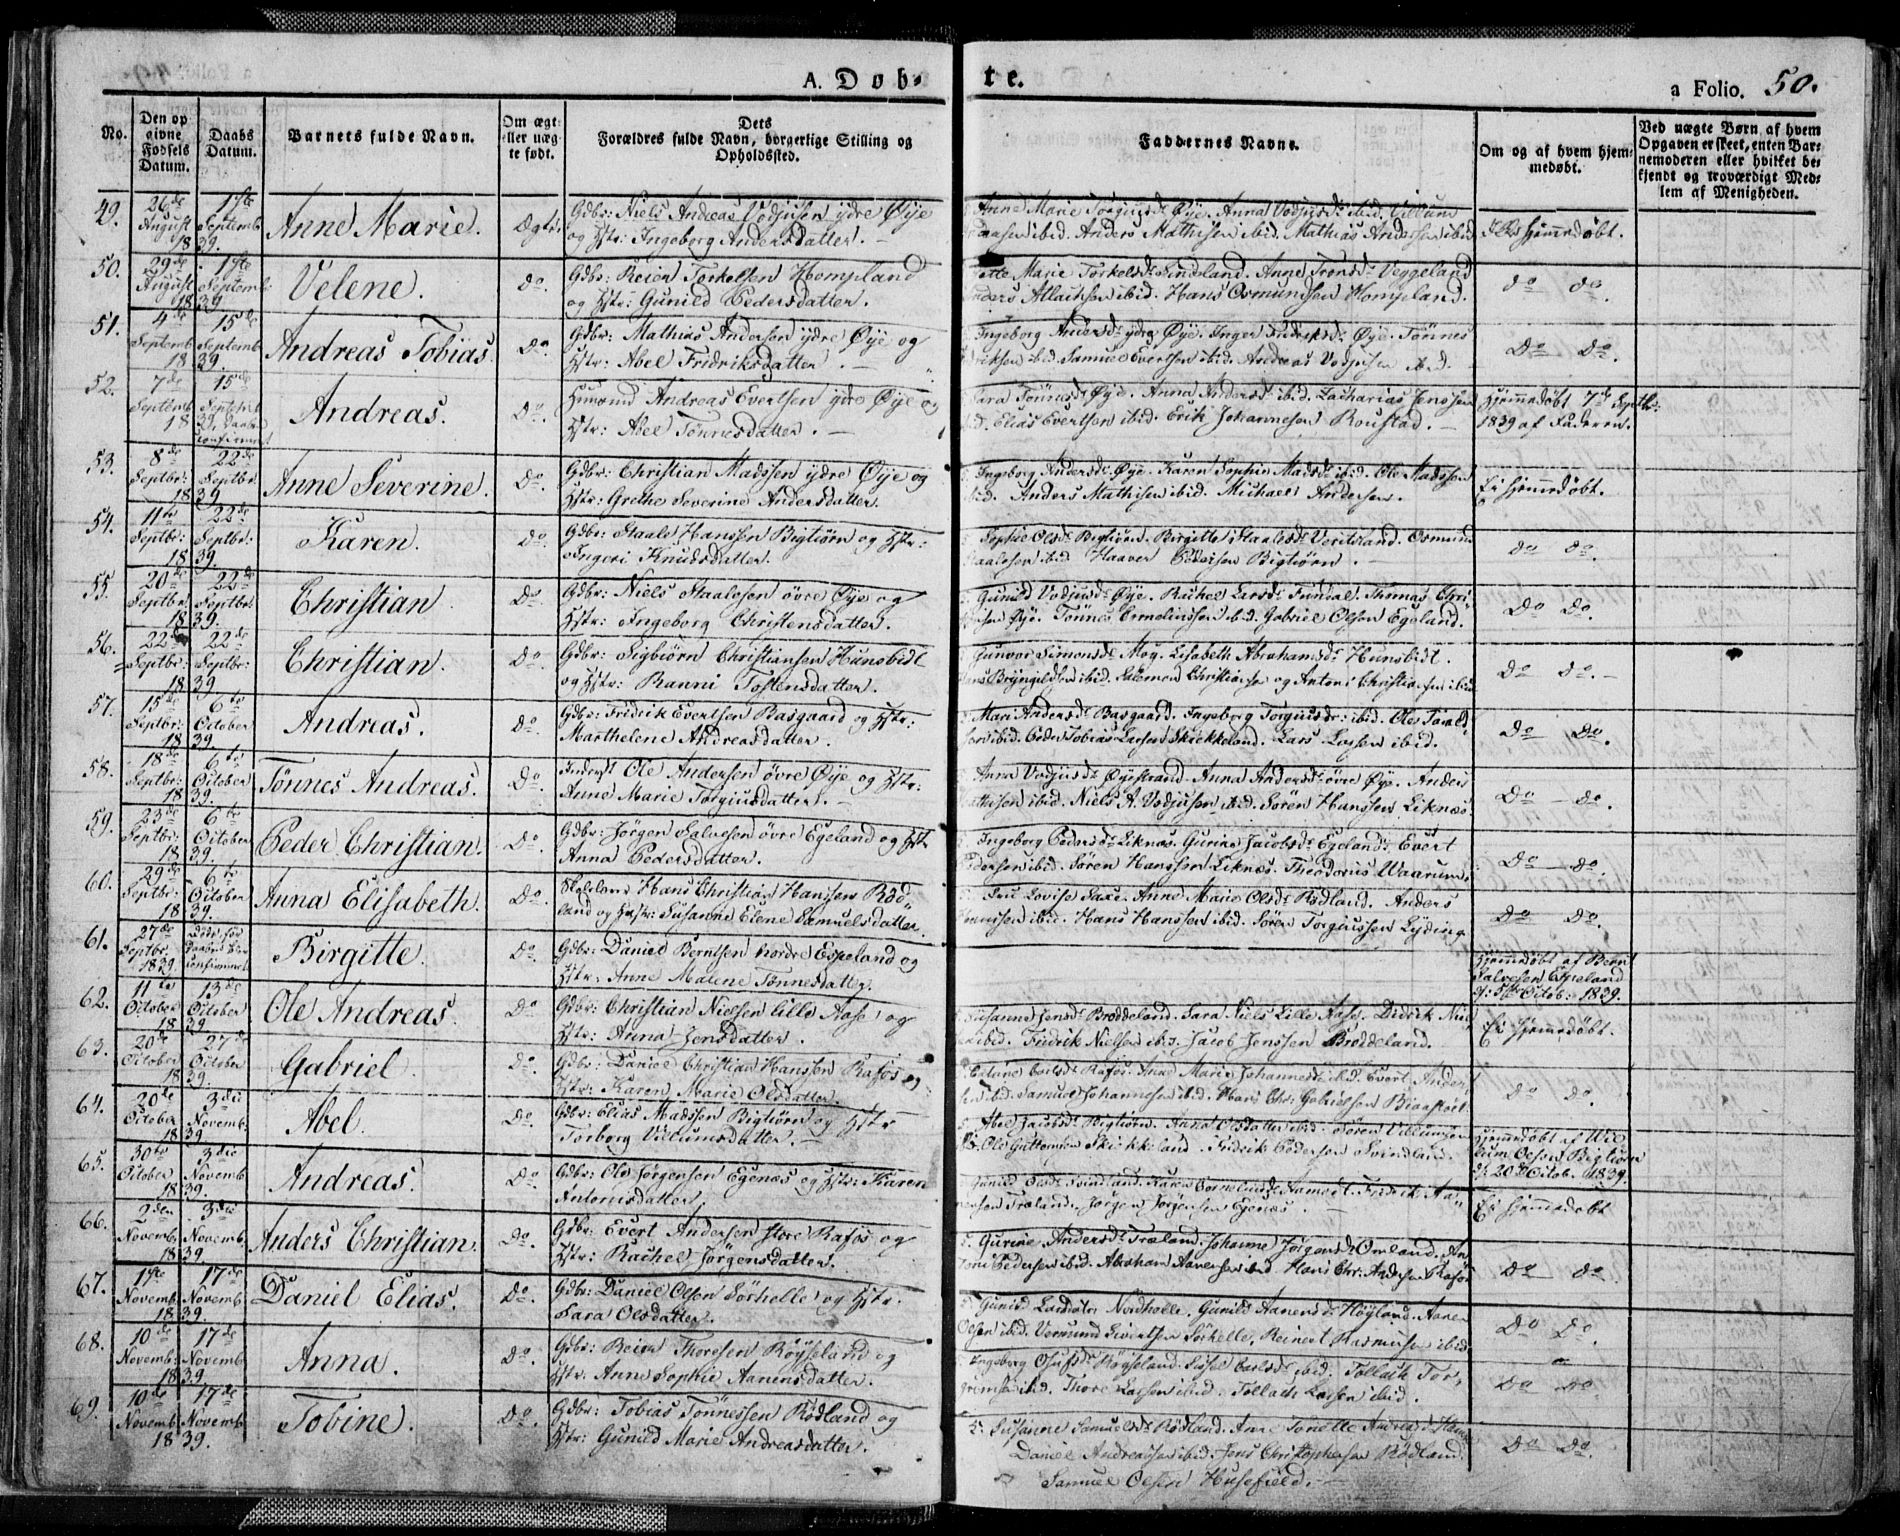 A. Døb-
te.
a Folio. 50.
No.
Den op
givne
Fødsels
Datum.
Daabs
Datum.
Barnets fulde Navn.
Om ægt-
eller uæg-
te født.
Dets
Forældres fulde Navn, borgerlige Stilling og
Opholdssted.
Faddernes Navne.
Om og af hvem hjem-
medøbt.
Ved uægte Børn af hvem
Opgaven er skeet, enten Bar-
nemoderen eller hvilket be-
kjendt og troværdigt Med-
lem af Menigheden.
49.
26de
August
1839.
1ste
Septemb
Anne Marie.
Ægte.
Gdbr: Niels Andreas Vodjusen ydre Øye
og Hstr: Ingeborg Andersdatter. -
Anne Marie Torgiusdr Øye. Anna Vodjusdr ibid. Villum
ibid. Anders Mathisen ibid. Mathias Andersen ibid
Ei Hjemmedøbt.
50.
29de
August
1839.
1ste
Septemb
Velene.
Do.
Gdbr: Reier Torkelsen Hompland
og Hstr: Gunild Pedersdatter.
Marie Torkelsdr Sindland. Anne Tronsdr Veggeland
Atlachsen ibid. Hans Osmundsen Hompland.
do do.
51.
4de
Septemb
1839.
15de
Septemb
Andreas Tobias.
Do.
Gdbr: Mathias Andersen ydre Øye og
Hstr: Abel Fridriksdatter. -
Ingeborg Andersdr ydre Øye. Inger Fridriksdr Øye. Tønnes
ibid. Samuel Evertsen ibid. Andreas Vodjusen ibid.
Do Do.
52.
7de
Septemb
1839.
15de
Septemb
Daaben
confirmeret
Andreas.
Do.
Huusmd Andreas Evertsen ydre Øye og
Hstr: Abel Tønnesdatter. -
Sara Tønnesdr Øye. Anna Andersdr ibid. Zacharias Jenssen
ibid. Elias Evertsen ibid. Erik Johannesen Roustad. -
Hjemmedøbt 7de Septbr:
1839 af Faderen.
53.
8de
Septbr:
1839
22de
Septbr:
Anne Severine.
Do.
Gdbr: Christian Madssen ydre Øye og
Hstr: Grethe Severine Andersdatter.
Ingeborg Andersdr Øye. Karen Sophie Madsdr ibid. Ole Madssen
ibid. Anders Mathisen ibid. Michael Andersen.
Ei Hjemmedøbt.
54.
11te
Septbr:
1839.
22de
Septbr:
Karen.
Do.
Gdbr: Staale Hanssen Bigtiørn og Hstr:
Ingeri Knudsdatter.
Sophie Olsdr Bigtiørn. Birgitte Staalesdr Veritsand. Osmund
Staalesen ibid. Haaver Pedersen Bigtiørn.
do do.
55.
20de
Septbr:
1839.
22de
Septbr:
Christian
Do
Gdbr: Niels Staalesen øvre Øye og
Hstr: Ingeborg Christensdatter.
Gunild Vodjusdr Øye. Rachel Larsdr Fundal. Thomas Chri-
Øye. Tønnes Cornelinssen ibid. Gabriel Olsen Egeland.
Do Do.
56.
22de
Septbr:
1839
22de
Septbr:
Christian.
Do
Gdbr: Sigbiørn Christiansen Hunsbidt
og Hstr: Ranni Tostensdatter.
Gunvor Simonsdr Mog. Lisabeth Abrahamsdr Hunsbidt.
Bryngelsen ibid. Salemon Christiansen og Antoni Christiansen ibid
Do Do. -
57.
15de
Septbr:
1839.
6te
October
Andreas.
Do.
Gdbr: Fridrik Evertsen Basgaard og Hstr:
Marthelene Andreasdatter.
Mari Andersdr Basgaard. Ingeborg Torgiusdr: ibid. Ole
ibid. Peder Tobias Larsen Skrekkeland. Lars Larsen ibid.
Do Do.
58.
18de
Septbr:
1839.
6te
October
Tønnes Andreas.
Do.
Inderst Ole Andersen øvre Øye og Hstr:
Anne Marie Torgiusdatter. -
Anna Vodjusdr Øyestrand. Anna Andersdr øvre Øye. Anders
Mathisen ibid. Niels A. Vodjusen ibid. Søren Hanssen Liknæs.
Do do.
59.
23de
Septbr:
1839.
6te
October
Peder Christian.
Do.
Gdbr: Jørgen Salvesen øvre Egeland og Hstr
Anna Pedersdatter.
Ingeborg Pedersdr Liknæs. Gurine Jacobsdr Egeland. Evert
Pedersen ibid. Søren Hanssen Liknæs. Theodorius Waarum.
Do do.
60.
29de
Septbr:
1839.
6te
October
Anna Elisabeth.
Do.
Hans Christian Hanssen Rød-
land og Hustr: Susanne Elene Samuelsdatter.
Fru Lovise Saxe. Anne Marie Olsdr Rødland. Anders
ibid. Hans Hanssen ibid. Søren Torgiussen Lyding.
Do Do.
61.
27de
Septbr:
1839.
Birgitte.
Do.
Gdbr: Daniel Berntsen nordre Espeland og
Hstr: Anne Malene Tønnesdatter.
Hjemmedøbt af Bernt
Salvesen Espeland
d: 5te Octob: 1839.
62.
11te
October
1839
13de
October
Ole Andreas.
Do.
Gdbr: Christian Nielsen lille Aase og
Hstr: Anna Jensdatter.
Susanne Jensdr Brøddeland. Sara Niels Lille Aase. Didrik Niel-
ibid. Fridrik Nielsen ibid. Jacob Jenssen Brøddeland.
Ei Hjemmedøbt.
63.
20de
October
1839.
27de
October
Gabriel
Do.
Gdbr: Daniel Christian Hanssen Rafos og
Hstr: Karen Marie Olsdatter.
Rafos. Anne Marie Johannesdr ibid. Evert Ander-
sen ibid. Samuel Johannesen ibid. Hans Chr: Gabrielsen
Do Do.
64.
20de
October
1839
3die
Novemb.
Abel.
Do.
Gdbr: Elias Madssen Bigtiørn og Hstr
Torborg Villumsdatter. -
Abel Jacobsdr Bigtiørn. Anna Olsdatter ibid. Søren Villumsen
Ole Guttormsen Skrekkeland. Fridrik Pedersen Svindland.
Hjemmedøbt af Wil-
leum Olsen Bigtiørn
d: 20de Octob. 1839.
65.
30te
October
1839.
3die
Novemb
Andreas.
Do
Gdbr: Ole Jørgensen Egenæs og Hstr: Karen
Antonisdatter.
Gunild Olsdr Svindland. Karen Corneliusdr. Fridrik
Træland. Jørgen Jørgensen Egenæs.
Ei Hjemmedøbt
66.
2den
Novemb.
1839.
3die
Novemb.
Anders Christian.
Do.
Gdbr: Evert Andersen store Rafos og
Hstr: Rachel Jørgensdatter.
Gurine Andersdr Træland. Johanne Jørgensdr Omland. An-
toni Pedersen ibid. Abraham Aanensen ibid. Hans Chr: Andersen Rafos
Do do.
67.
1ste
Novemb.
1839.
17de
Novemb.
Daniel Elias.
Do.
Gdbr: Daniel Olsen Sørhelle og Hstr.
Sara Olsdatter.
Gunild Nordhelle. Gunild Aanensdr Høyland. Aanen
Olsen ibid. Vermund Sivertsen Sørhelle. Reinert Rasmusen ibid
Do Do.
68.
10de
Novemb:
1839.
17de
Novemb
Anna.
Do.
Gdbr: Reier Thoresen Røysland og
Hstr: Anne Sophie Aanensdatter.
Ingeborg Osufsdr Røysland. Sissel ibid. Tollach Tor-
grimsen ibid. Thore Larsen ibid. Tollach Larsen ibid.
Do Do.
69.
10de
Novemb
1839.
17de
Novemb
Tobine.
Do.
Gdbr: Tobias Tønnessen Rødland og
Hstr: Gunild Marie Andreasdatter.
5: Susanne Samuelsdr Rødland. Ane Tonette Andreasdr
Daniel Andreassen ibid. Jens Christophersen Rødland.
Samuel Olsen Husefield. -
Do Do.